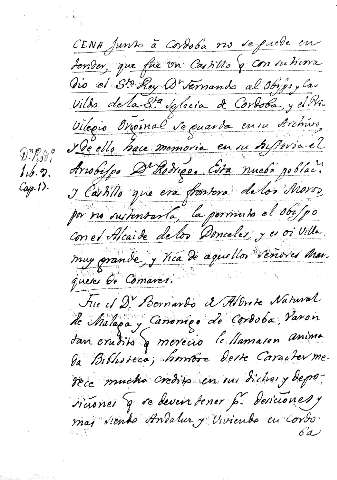 CENA junto á Cordoba no se puede en
tender, que fue un Castillo q con su tierra
dio el Sto. Rey Dn. Fernando al Obispo, y las
Villas de la Sta. Iglecia de Cordoba, y el Pri
vilegio Original se guarda en su Archivo,
y de ello hace memoria en su historia el
Arzobispo Dn. Rodrigo. Esta nueba poblan.
y Castillo que era frontera de los Moros,
por no sustentarla, la permuto el Obispo
con el Alcaide de los Donceles, y es oi Villa
muy grande, y rica de aquellos Señores Mar
queses de Comares.
Lib. 9.
Cap. 17.
Fue el Dr. Bernardo de Alderete Natural
de Malaga y Canonigo de Cordoba, Varon
tan erudito q merecio le llamason anima
da Biblioteca; hombre deste Caracter me
rece mucho credito en sus dichos y depo
siciones q se deven tener pr. desiciones y
mas siendo Andaluz y Viviendo en Cordo
ba